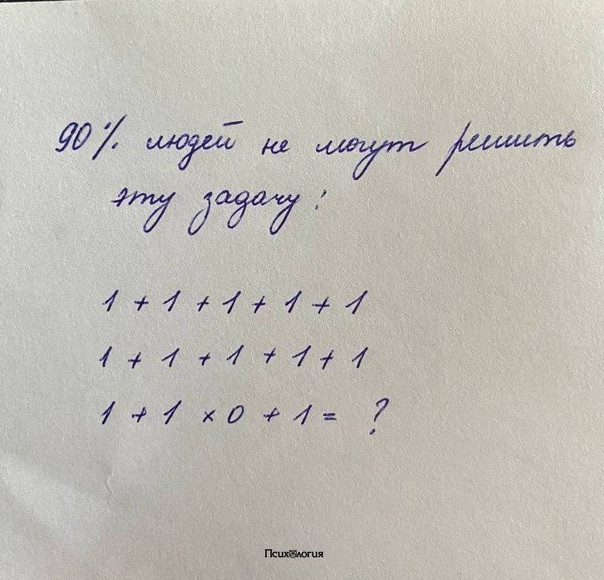 90% людей не могут решить
эту задачу:
1 + 1 + 1 + 1 + 1
1 + 1 + 1 + 1 + 1
1 + 1 × 0 + 1 = ?
Психология